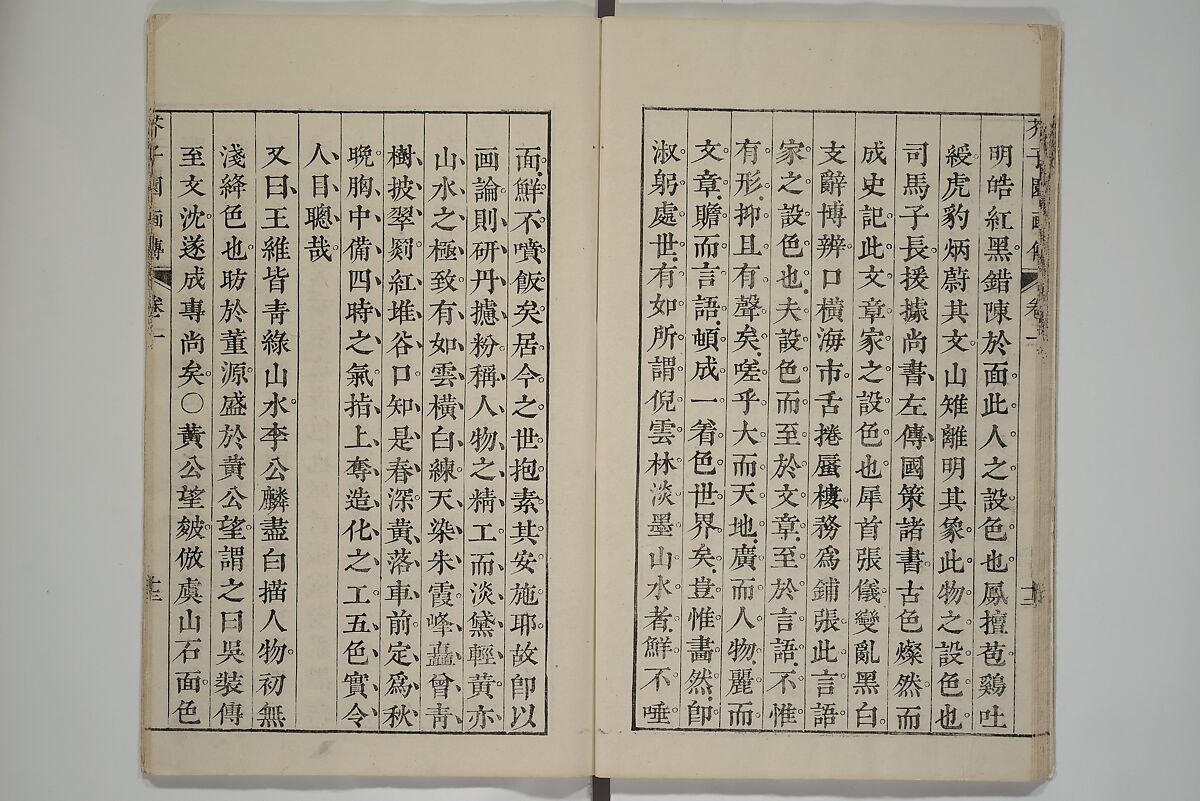 芥子園畫傳
卷一
十二
明皓紅黑錯陳於面此人之設色也鳳擅苞鷄吐
綬虎豹炳蔚其文山雉離明其象此物之設色也
司馬子長援據尚書左傳國策諸書古色燦然而
成史記此文章家之設色也犀首張儀變亂黑白
支辭博辨口橫海市舌捲蜃樓務爲鋪張此言語
家之設色也夫設色而至於文章至於言語不惟
有形抑且有聲矣嗟乎大而天地廣而人物麗而
文章贍而言語頓成一着色世界矣豈惟畫然卽
淑躬處世有如所謂倪雲林淡墨山水者鮮不唾
面鮮不噴飯矣居今之世抱素其安施耶故卽以
画論則研丹攄粉稱人物之精工而淡黛輕黄亦
山水之極致有如雲橫白練天染朱霞峰矗曾青
樹披翠罽紅堆谷口知是春深黄落車前定爲秋
晩胸中備四時之氣指上奪造化之工五色實令
人目聰哉
又曰王維皆靑綠山水李公麟盡白描人物初無
淺絳色也昉於董源盛於黄公望謂之曰吳装傳
至文沈遂成專尚矣〇黄公望皴倣虞山石面色
芥子園画傳
卷一
十三